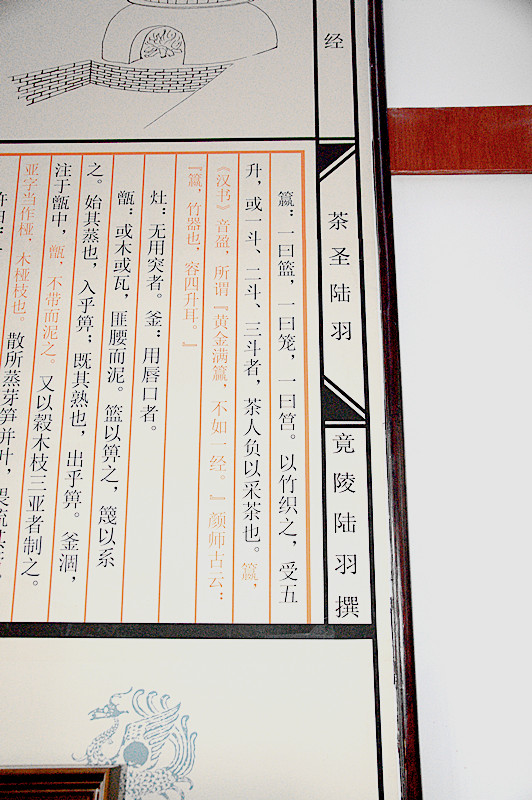 经
茶圣陆羽
竟陵陆羽撰
籯：一曰篮，一曰笼，一曰筥。以竹织之，受五
升，或一斗、二斗、三斗者，茶人负以采茶也。籯，
《汉书》音盈，所谓『黄金满籯，不如一经。』颜师古云：
『籯，竹器也，容四升耳。』
灶：无用突者。釜：用唇口者。
甑：或木或瓦，匪腰而泥。篮以箅之，篾以系
之。始其蒸也，入乎箅；既其熟也，出乎箅。釜涸，
注于甑中，甑，不带而泥之。又以榖木枝三亚者制之。
亚字当作桠，木桠枝也。散所蒸芽笋并叶，畏流